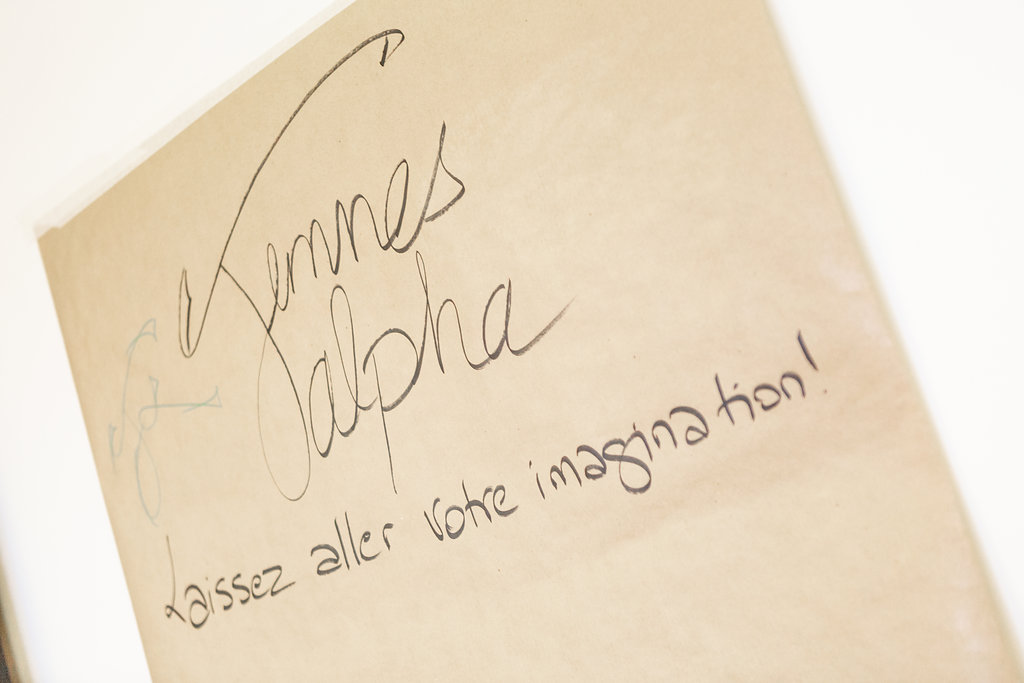 Femmes
alpha
Laissez aller votre imagination!